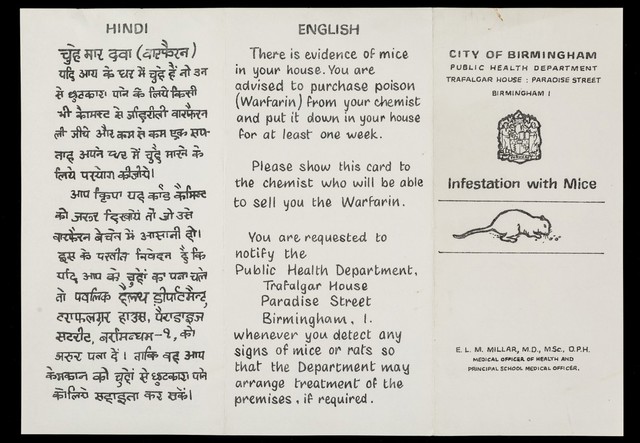 HINDI
चुहे मार दवा (वारफैरन)
यदि आप के घर में चुहे हैं तो उन
से छुटकारा पाने के लिये किसी
भी कैमिस्ट से वारफैरन
ली जीये और कम से कम एक सप-
ताह अपने घर में चुहे मारने के
लिये परयोग कीजीये।
आप क्रिपा यह कार्ड कैमिस्ट
को जरुर दिखायें तो जो उसे
वारफैरन बेचेन में आसानी हो।
इस के निवेदन है कि
यदि आप को चुहों का पता चले
तो पबलिक हैलथ डीपार्टमैन्ट,
टराफलगर हाउस, पैराडाइज
सटरीट, को
जरुर पता दें। ताकि वह आप
के मकान को चुहों से छुटकारा पाने
के लिये सहाइता कर सकें।
ENGLISH
There is evidence of mice
in your house. You are
advised to purchase poison
(Warfarin) from your chemist
and put it down in your house
for at least one week.
Please show this card to
the chemist who will be able
to sell you the Warfarin.
You are requested to
notify the
Public Health Department,
Trafalgar House
Paradise Street
Birmingham, 1.
whenever you detect any
signs of mice or rats so
that the Department may
arrange treatment of the
premises, if required.
CITY OF BIRMINGHAM
PUBLIC HEALTH DEPARTMENT
TRAFALGAR HOUSE : PARADISE STREET
BIRMINGHAM 1
Infestation with Mice
E. L. M. MILLAR, M.D., M.Sc., D.P.H.
MEDICAL OFFICER OF HEALTH AND
PRINCIPAL SCHOOL MEDICAL OFFICER.